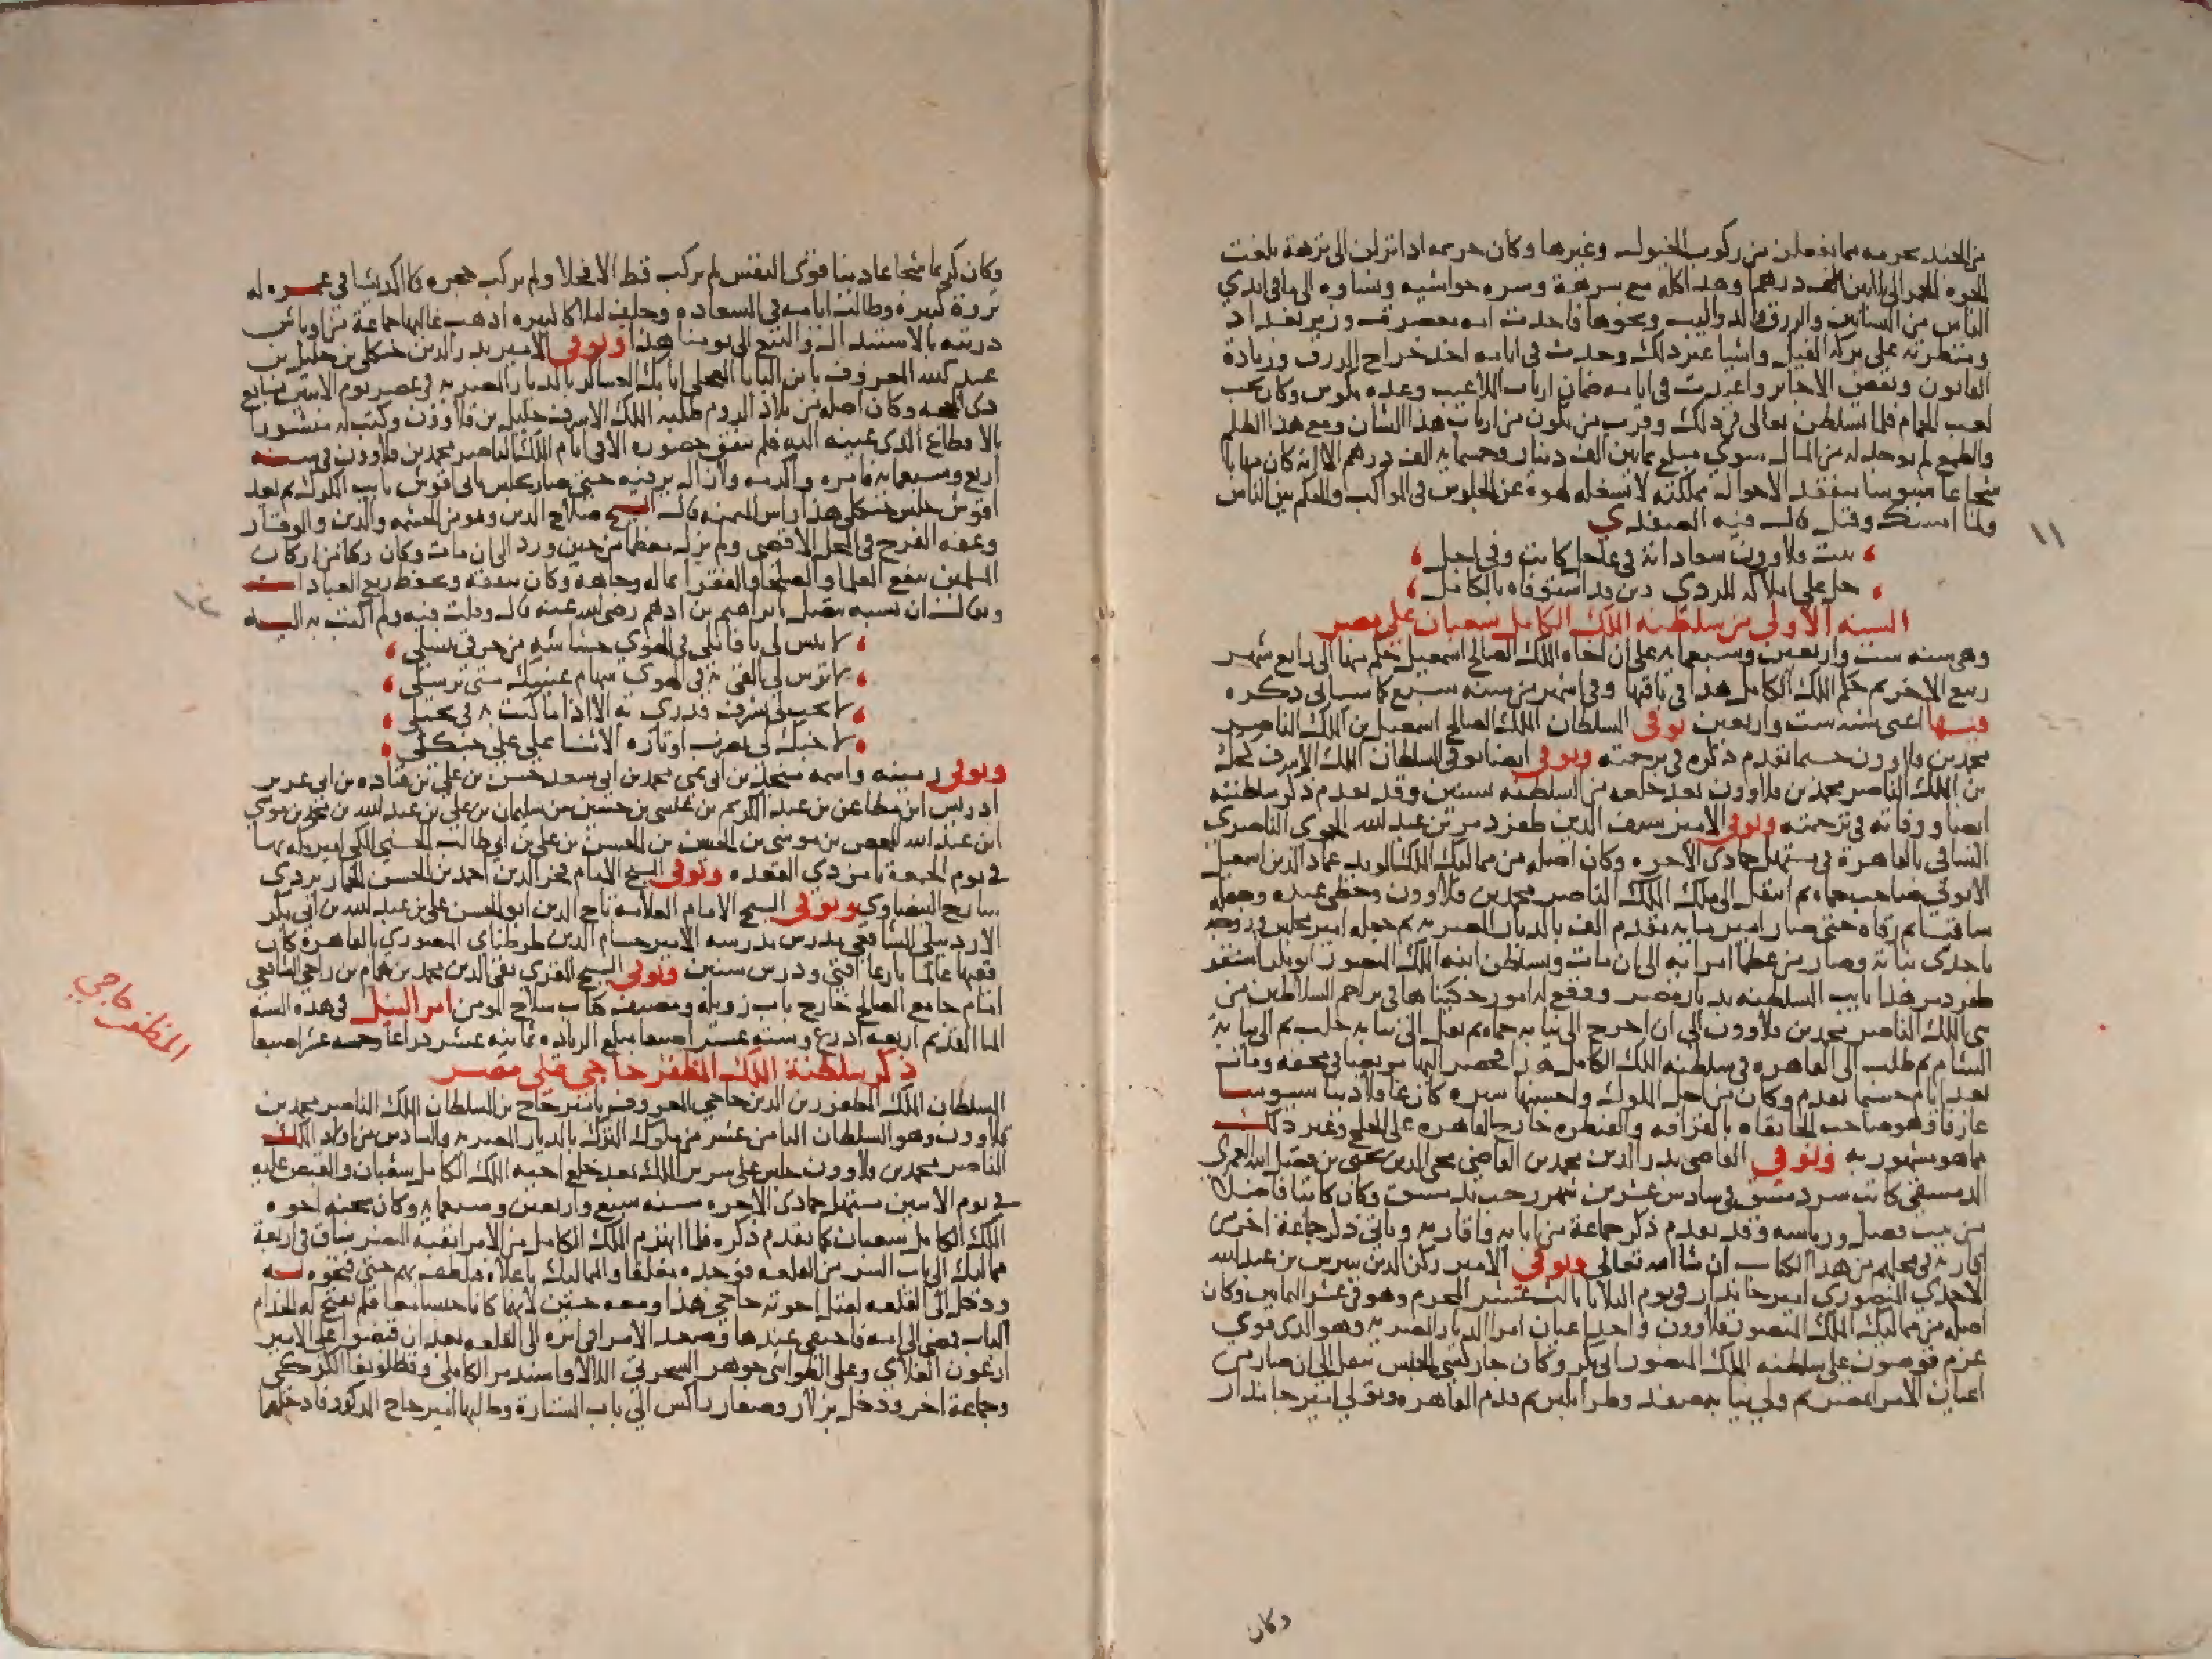 من الجند بحرمه بما يفعلن من ركوب الخيول وغيرها وكان حريمه اذا نزلن الى نزهة بلغت
الجره الخمر الى ثلاثين درهما وهذا كله مع شرهه وشره حواشيه ونسايه الى ما في ايدي
الناس من البساتين والرزق والدواليب ونحوها فاحدث
القانون ونقص الاجاير واعيدت في ايامه ضمان ارباب الملاعيب وعده مكوس وكان يحب
لعب الحمام فلما تسلطن تغالى في ذلك وقرب من يكون من ارباب هذا الشان ومع هذا الظلم
والطمع لم يوجد له من المال سوى مبلغ ثمانين الف دينار وخمسمايه الف درهم الا انه كان مهابا
شجاعا سيوسا متفقدا لاحوال مملكته لا تشغله لهوه عن الجلوس في المواكب والحكم بين الناس
ولما امسك وقتل قال فيه الصفدي
١١
بيت قلاوون سعاداته في عاجل كانت وفي اجل
حل على املاكه للردي دين قد استوفاه بالكامل
السنه الاولى من سلطنه الملك الكامل شعبان على مصر
وهي سنه ست واربعين وسبعمايه على ان اخاه الملك الصالح اسمعيل حكم منها الى رابع شهر
ربيع الاخر ثم حكم الملك الكامل هذا في باقيها وفي اشهر من سنه سبع كما سياتي ذكره
فيها اعني سنه ست واربعين توفي السلطان الملك الصالح اسمعيل بن الملك الناصر
محمد بن قلاوون حسبما تقدم ذكره في ترجمته وتوفي ايضا توفي السلطان الملك الاشرف كجك
بن الملك الناصر محمد بن قلاوون بعد خلعه من السلطنه بسنين وقد تقدم ذكر سلطنته
ايضا ووفاته في ترجمته وتوفي الامير سيف الدين طقزدمر بن عبد الله الحموي الناصري
الساقي بالقاهرة في مستهل جمادى الاخره وكان اصله من مماليك الملك المويد عماد الدين اسمعيل
الايوبي صاحب حماه ثم انتقل الى ملك الملك الناصر محمد بن قلاوون وحظي عنده وجعله
ساقيا ثم رقاه حتى صار امير مايه مقدم الف بالديار المصريه ثم جعله امير مجلس وزوجه
باحدى بناته وصار من عظما امرايه الى ان مات وتسلطن ابنه الملك المنصور ابو بكر استقر
طقزدمر هذا نايب السلطنه بديار مصر ووقع له امور ذكرناها في تراجم السلاطين من
بني الملك الناصر محمد بن قلاوون الى ان اخرج الى نيابه حماه ثم نقل الى نيابه حلب ثم الى نيابه
الشام ثم طلب الى القاهره في سلطنه الملك الكامل هذا فحضر اليها مريضا في محفه ومات
بعد ايام حسبما تقدم وكان من اجل الملوك واحسنها سيره كان عاقلا دينا سيوسا
عارفا وهو صاحب الخانقاه بالقرافه والقنطره خارج القاهره على الخليج وغير ذلك
مما هو مشهور به وتوفي القاضي بدر الدين محمد بن القاضي محي الدين يحيى بن فضل الله العمري
الدمشقي كاتب سر دمشق في سادس عشرين شهر رجب بدمشق وكان كاتبا فاضلا
من بيت فضل ورياسه وقد تقدم ذكر جماعة من ابايه واقاربه وياتي ذكر جماعة اخرى من
اقاربه في محلهم من هذا الكتاب ان شا الله تعالى وتوفي الامير ركن الدين بيبرس بن عبد الله
الاحمدي المنصوري امير جاندار في يوم الثلاثا ثالث عشر المحرم وهو في عشر الثمانين وكان
اصله من مماليك الملك المنصور قلاوون واحد اعيان امرا الديار المصريه وهو الذي قوي
عزم قوصون على سلطنه الملك المنصور ابي بكر وكان جاركسي الجنس تنقل الى ان صار من
اعيان الامرا بمصر ثم ولي نيابه صفد وطرابلس ثم قدم القاهره وتولى امير جاندار
وكان
وكان كريما شجاعا دينا قوي النفس لم يركب قط الا فحلا ولم يركب حجره ولا اكديشا في عمره وله
ثروة كبيره وطالت ايامه في السعاده وخلف املاكا كثيره اذهب غالبها جماعة من اوباش
ذريته بالاستبدال والبيع الى يومنا هذا وتوفي الامير بدر الدين جنكلي بن خليل بن
عبد الله المعروف بابن البابا العجلي اتابك العساكر بالديار المصريه في عصر يوم الاثنين سابع
ذي الحجه وكان اصله من بلاد الروم طلبه الملك الاشرف خليل بن قلاوون وكتب له منشورا
بالاقطاع الذي عينه اليه فلم يتفق حضوره الا في ايام الملك الناصر محمد بن قلاوون في سنه
اربع وسبعمايه فامره واكرمه ولازال يرقيه حتى صار يجلس ثاني اقوش نايب الكرك ثم بعد
اقوش جلس جنكلي هذا راس الميمنه قال الشيخ صلاح الدين وهو من الحشمه والدين والوقار
وعفه الفرج في المحل الاقصى ولم يزل معظما من حين ورد الى ان مات وكان ركنا من اركان
المسلمين ينفع العلما والصلحا والفقرا بماله وجاهه وكان يتفقه ويحفظ ربع العبادات
ويقال ان نسبه يتصل بابراهيم بن ادهم رضي الله عنه قال وقلت فيه ولم اكتب به اليه
١٢
لا تنس لي يا قاتلي في الهوى حشاشه من حرقي تنسلي
لا ترس لي القى به في الهوى سهام عينيك متى ترسلي
لا تحت لي يشرف قدري به الا اذا ما كنت به تختلي
لا جنك لي يضرب اوتاره الا ثنا على علي جنكلي
وتوفي رميثه واسمه منجد بن ابي نمي محمد بن ابي سعد حسن بن علي بن قتاده بن ابي عزيز
ادريس ابن مطاعن بن عبد الكريم بن عيسى بن حسين بن سليمان بن علي بن عبد الله بن محمد بن موسى
ابن عبد الله المحض بن موسى بن الحسن بن الحسن بن علي بن ابي طالب الحسني المكي امير مكه بها
في يوم الجمعة ثامن ذي القعده وتوفي الشيخ الامام فخر الدين احمد بن الحسن الجاربردي
شارح البيضاوي وتوفي الشيخ الامام العلامه تاج الدين ابو الحسن علي بن عبد الله بن ابي بكر
الاردبيلي الشافعي مدرس مدرسه الامير حسام الدين طرنطاي المنصوري بالقاهرة كان
فقيها عالما بارعا افتى ودرس سنين وتوفي الشيخ المقري تقي الدين محمد بن همام بن راجي الشافعي
امام جامع الصالح خارج باب زويله ومصنف كتاب سلاح المومن امر النيل في هذه السنه
الما القديم اربعه اذرع وسته عشر اصبعا مبلغ الزياده ثمانيه عشر ذراعا وخمسه عشر اصبعا
ذكر سلطنة الملك المظفر حاجي على مصر
المظفر حاجي
السلطان الملك المظفر زين الدين حاجي المعروف بامير حاج بن السلطان الملك الناصر محمد بن
قلاوون وهو السلطان الثامن عشر من ملوك الترك بالديار المصريه والسادس من اولاد الملك
الناصر محمد بن قلاوون جلس على سرير الملك بعد خلع اخيه الملك الكامل شعبان والقبض عليه
في يوم الاثنين مستهل جمادى الاخره سنه سبع واربعين وسبعمايه وكان سجنه اخوه
الملك الكامل شعبان كما تقدم ذكره فلما انهزم الملك الكامل من الامرا بقبة النصر ساق في اربعة
مماليك الى باب السر من القلعه فوجده مغلقا والمماليك باعلاه فتلطف بهم حتى فتحوه له
ودخل الى القلعه لقتل اخوته حاجي هذا ومعه حسين لانهما كانا حبسا معا فلم يفتح له الخدام
الباب فمضى الى امه فاختفى عندها وصعد الامرا في اثره الى القلعه بعد ان قبضوا على الامير
ارغون العلاي وعلى الطواشي جوهر السحرتي اللالا واسندمر الكاملي وقطلوبغا الكركي
وجماعة اخر ودخل بزلار وصمغار راكبين الى باب الستارة وطلبا امير حاج المذكور فادخلهما